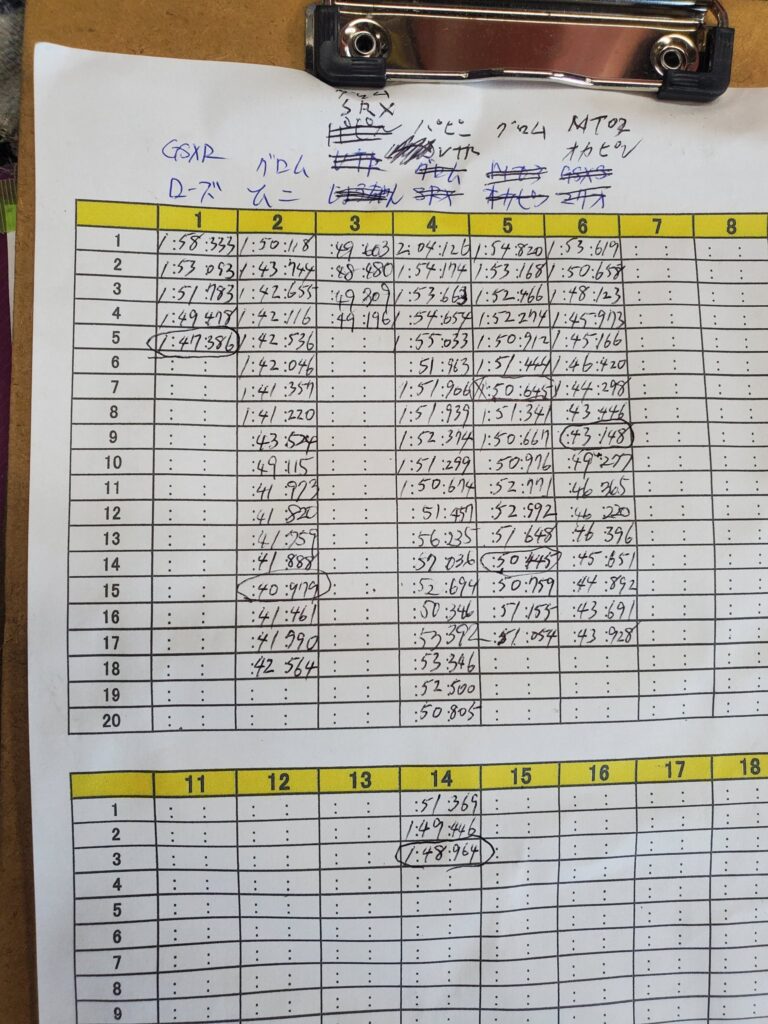 SRX
GSXR グロム パピン グロム MT07
レサ オカピン
ローズ ムニ グロム SRX オカピン
1 2 3 4 5 6 7 8
1 1:58:333 1:50:118 :49:603 2:04:126 1:54:820 1:53:619
2 1:53:053 1:43:744 :48:480 1:54:174 1:53:168 1:50:658
3 1:51:783 1:42:655 :49:309 1:53:663 1:52:466 1:48:123
4 1:49:478 1:42:116 :49:196 1:54:654 1:52:274 1:45:973
5 1:47:386 1:42:536 1:55:033 1:50:912 1:45:166
6 1:42:046 :51:963 1:51:444 1:46:420
7 1:41:357 1:51:906 1:50:645 1:44:298
8 1:41:220 1:51:939 1:51:341 :43:446
9 :43:524 1:52:374 1:50:667 :43:148
10 :49:115 1:51:299 :50:976 :49:277
11 :41:973 1:50:674 :52:771 :46:365
12 :41:820 :51:457 :52:592 :46:220
13 :41:759 :56:235 :51:648 :46:396
14 :41:888 :57:036 :50:445 :45:651
15 :40:979 :52:694 :50:759 :44:892
16 :41:461 :50:346 :51:155 :43:691
17 :41:990 :53:392 :51:054 :43:928
18 :42:564 :53:346
19 :52:500
20 :50:805
11 12 13 14 15 16 17 18
1 :51:369
2 1:49:446
3 1:48:964
4
5
6
7
8
9